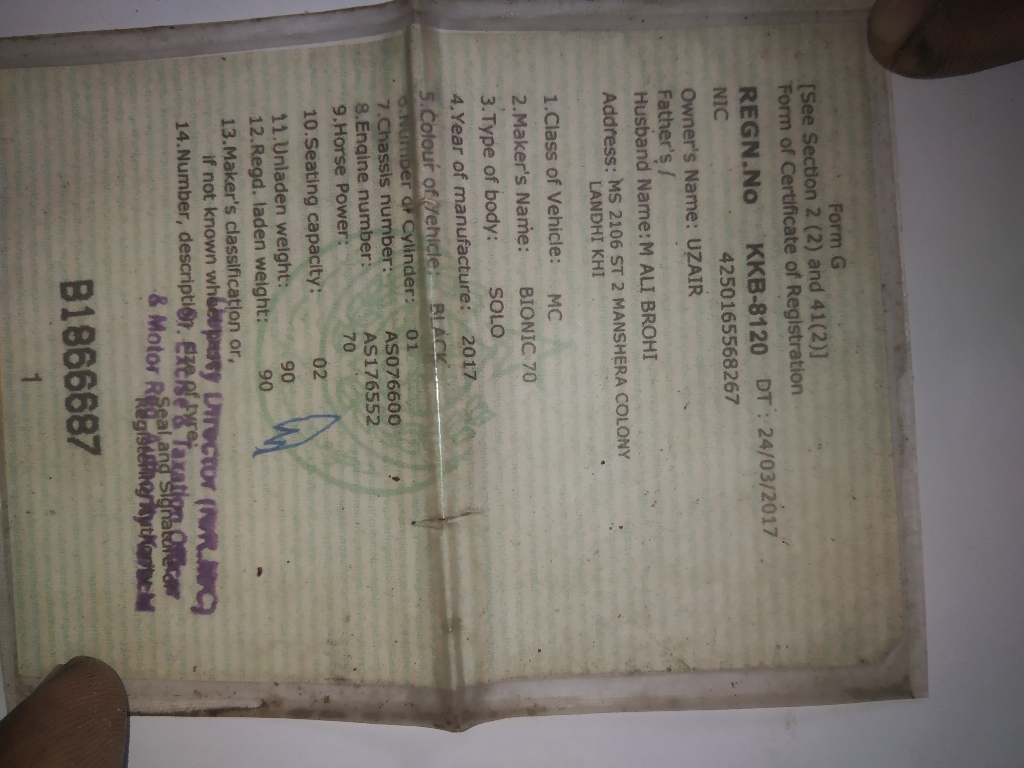 Form G
[See Section 2 (2) and 41(2)]
Form of Certificate of Registration
REGN.No KKB-8120 DT : 24/03/2017
NIC 4250165568267
Owner's Name: UZAIR
Father's /
Husband Name: M ALI BROHI
Address: MS 2106 ST 2 MANSHERA COLONY
LANDHI KHI
1.Class of Vehicle: MC
2.Maker's Name: BIONIC 70
3.Type of body: SOLO
4.Year of manufacture: 2017
5.Colour of vehicle: BLACK
6.Number of Cylinder: 01
7.Chassis number: AS076600
8.Engine number: AS176552
9.Horse Power: 70
10.Seating capacity: 02
11.Unladen weight: 90
12.Regd. laden weight: 90
13.Maker's classification or,
if not known wheel
Deputy Director
14.Number, description, size of tyre.
Excise & Taxation Officer
Seal and Signature of
& Motor Reg. Authority
Registering Authority
B1866687
1